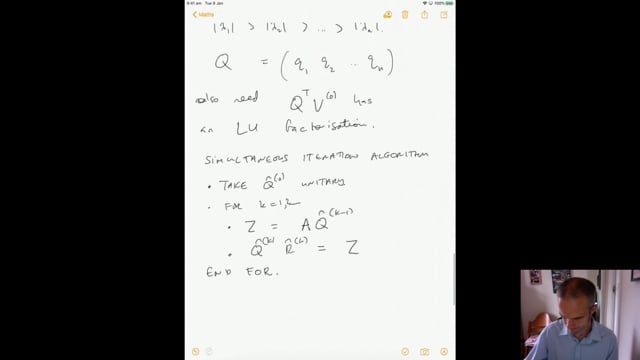 9:41 am Tue 9 Jan
100%
Maths
|λ₁| > |λ₂| > ... > |λₙ|.
Q = (q₁ q₂ .. qₙ)
also need QᵀV⁽⁰⁾ has
an LU factorisation.
SIMULTANEOUS ITERATION ALGORITHM
• TAKE Q̂⁽⁰⁾ UNITARY
• FOR k=1,2,
• Z = AQ̂⁽ᵏ⁻¹⁾
• Q̂⁽ᵏ⁾ R̂⁽ᵏ⁾ = Z
END FOR.